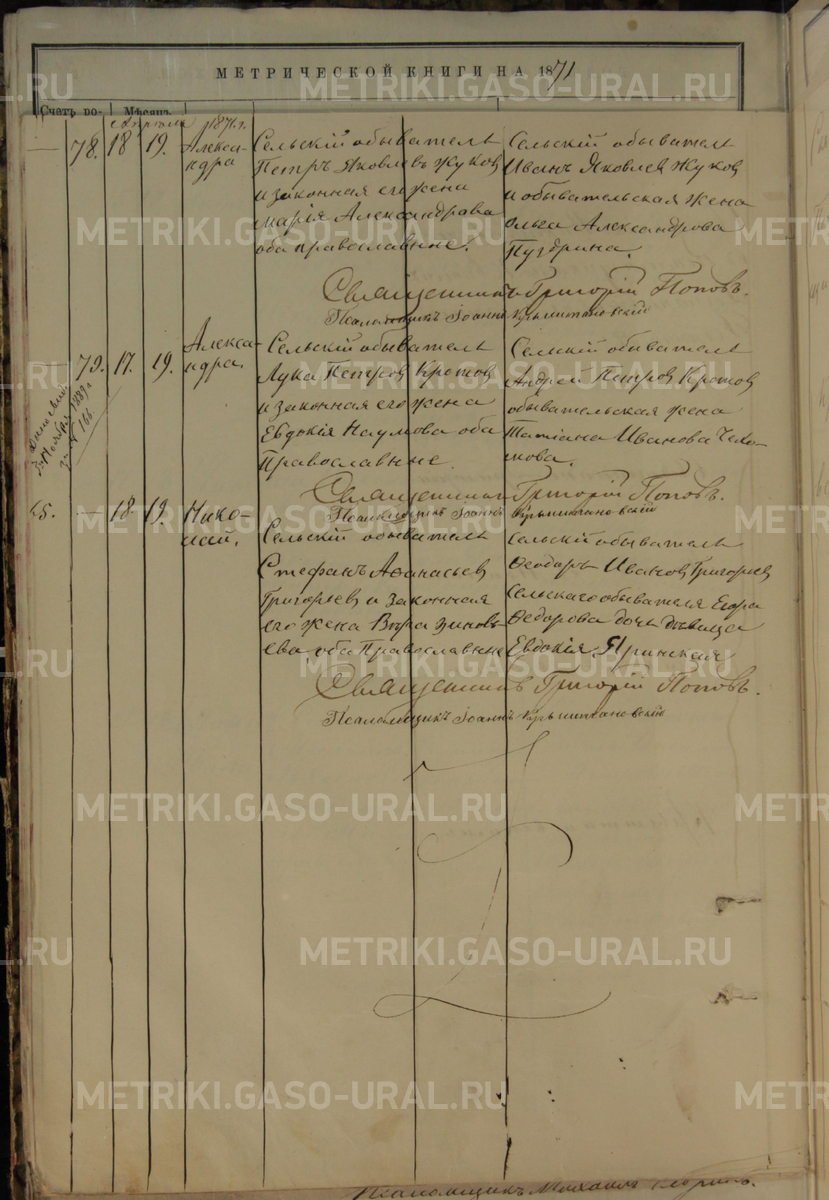 МЕТРИЧЕСКОЙ КНИГИ НА 1871
Счетъ ро- Мѣсяцъ
Апрѣль 1871 г.
— 78. 18 19. Алекса-
ндра
Сельскій обыватель
Петръ Яковлевъ Жуков
и законная его жена
Марія Александрова
оба православные.
Сельскій обыватель
Иванъ Яковлев Жуков
и обывательская жена
Ольга Александрова
Пугдрина.
Священникъ Григорій Поповъ.
Псаломщикъ Іоаннъ
79. 17. 19. Алекса-
ндра.
Сельскій обыватель
Лука Петров Кротов
и законная его жена
Евдокія Наумова оба
Православные.
Сельскій обыватель
Андрей Петров Кротов
обывательская жена
Татіана Иванова Чехо-
мова.
Ноября 1889 г.
за № 166
Священникъ Григорій Поповъ.
Псаломщикъ Іоаннъ
— 18 19. Нико-
лай.
Сельскій обыватель
Стефанъ Аѳанасьев
Григорьев и законная
его жена Вѣра Зиновь-
ева, оба Православные
Сельскій обыватель
Ѳеодоръ Иванов Григорьев
сельскаго обывателя Егора
Ѳедорова дочь дѣвица
Евдокія
Священникъ Григорій Поповъ.
Псаломщикъ Іоаннъ
Псаломщикъ Михаилъ
METRIKI.GASO-URAL.RU